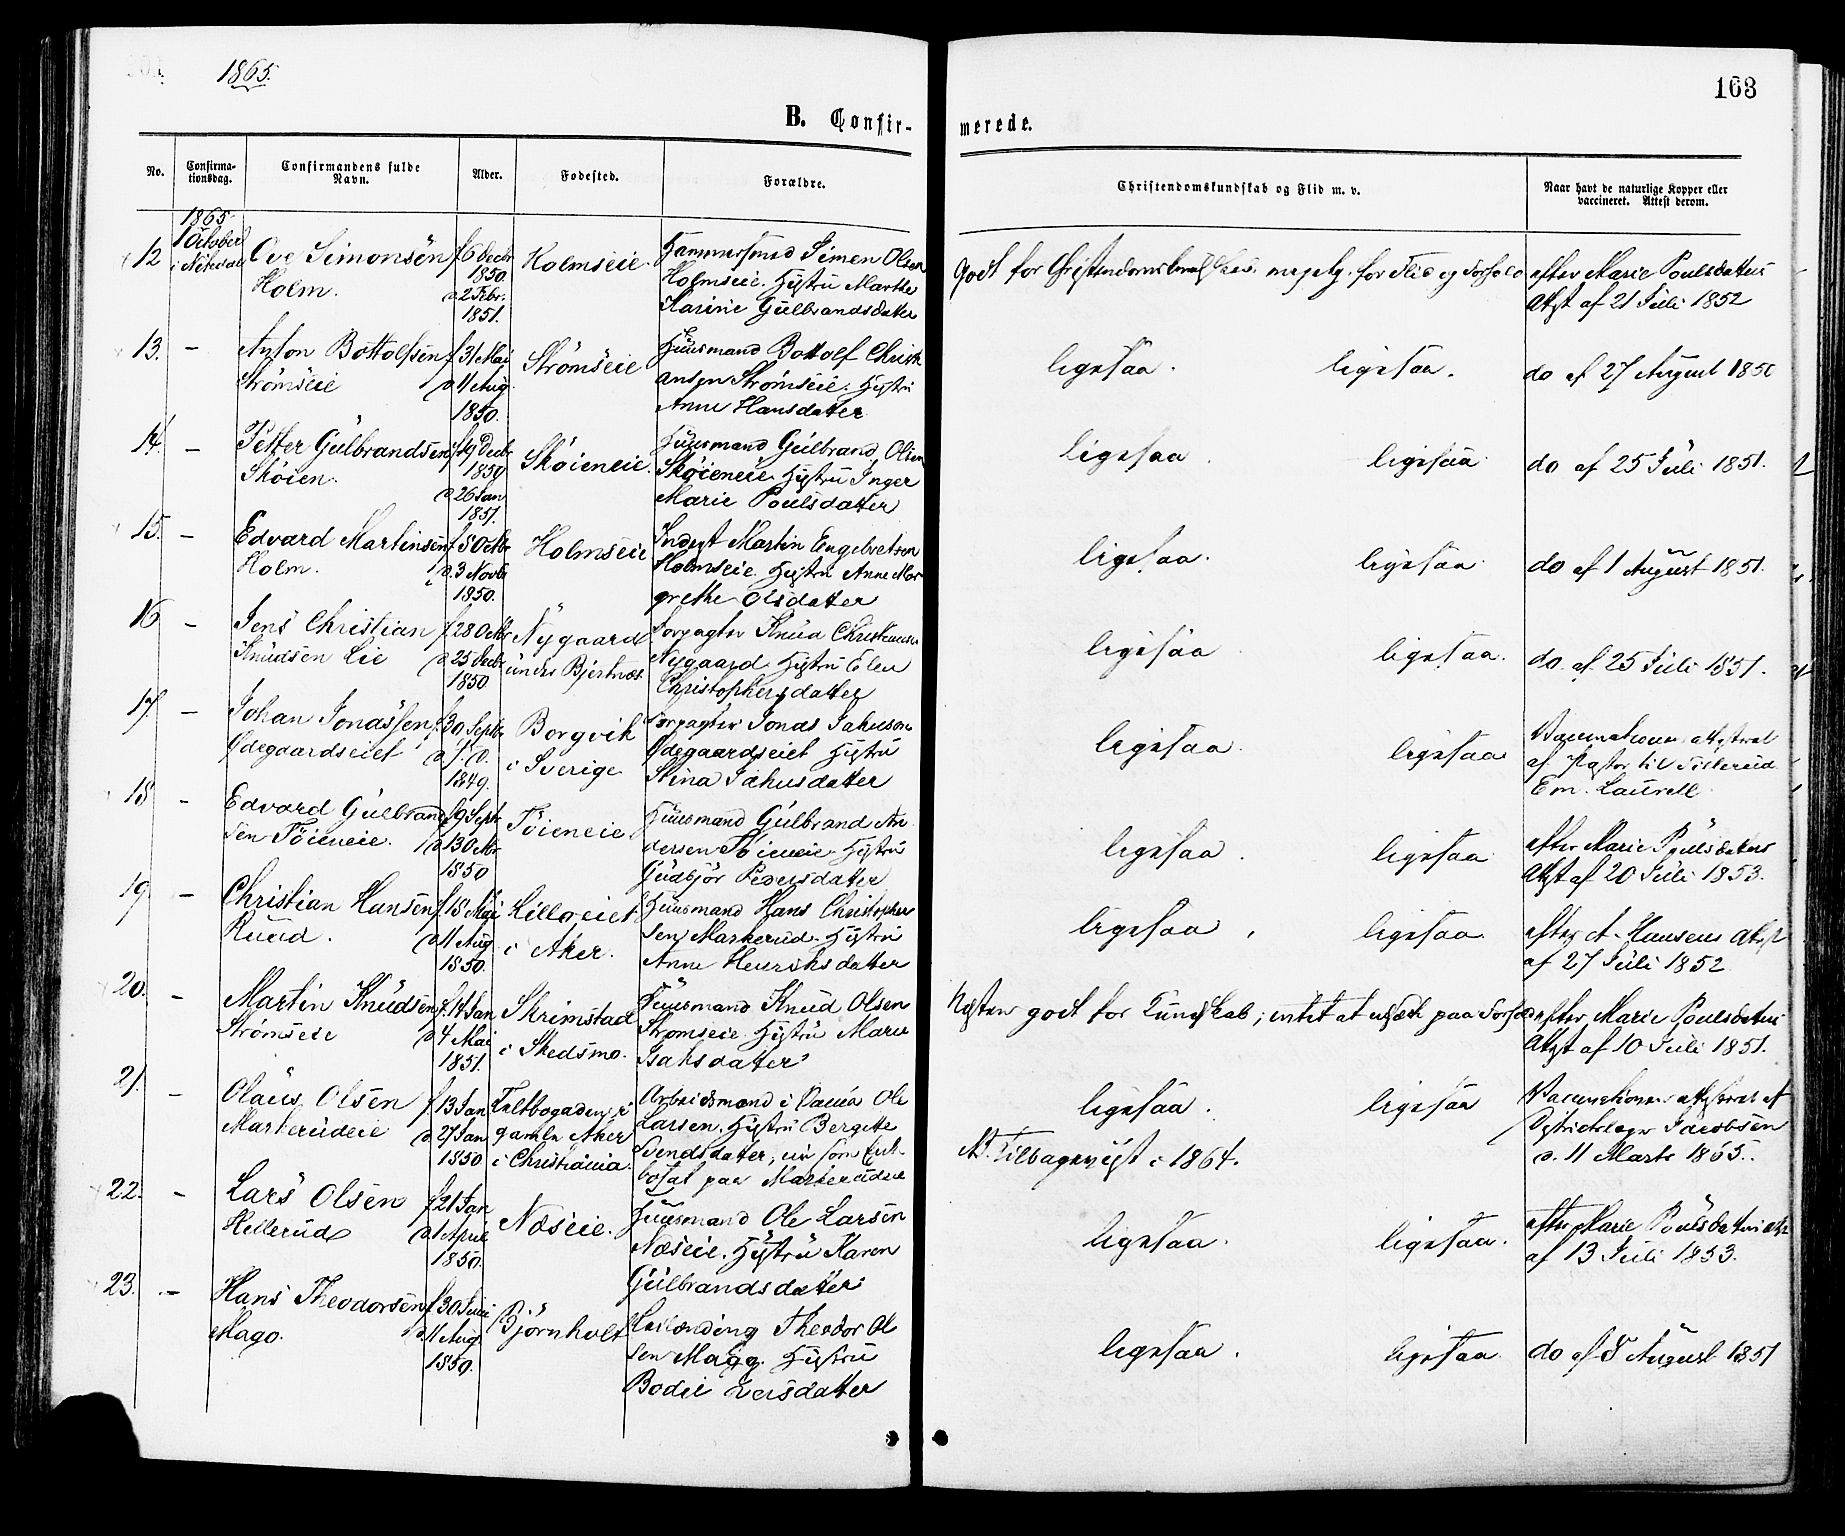 1865.
163
B. Confir-
merede.
No.
Confirma-
tionsdag.
Confirmandens fulde
Navn.
Alder.
Fødested.
Forældre.
Christendomskundskab og Flid m. v.
Naar havt de naturlige Kopper eller
vaccineret. Attest derom.
1865
1 October
i Nitedal
12
Ove Simonsen
Holm.
f. 6 Decbr
1850.
d. 2 Febr.
1851.
Holmseie.
Hammersmed Simen Olsen
Holmseie. Hustru Marthe
Karine Gulbrandsdatter
Godt for
for Flid og Forhold
efter Marie Poulsdatters
Attest af 21 Juli 1852
13. -
Anton Bottolfsen
Strømseie
f. 31 Mai
d. 11 Aug.
1850.
Strømseie
Huusmand Bottolf Christi
ansen Strømseie. Hustru
Anne Hansdatter
ligesaa. ligesaa.
do af 27 August 1850
14. -
Petter Gulbrandsen
Skøien.
f. 19 Decbr
1850
d. 26 Jan
1851.
Skøieneie.
Huusmand Gulbrand Olsen
Skøieneie. Hustru Inger
Marie Poulsdatter
ligesaa. ligesaa
do af 25 Juli 1851.
15. -
Edvard Martinsen
Holm.
f. 5 Octbr
d. 3 Novb
1850.
Holmseie
Inderst Martin Engebretsen
Holmseie. Hustru Anne Mar
grethe Olsdatter
ligesaa. ligesaa.
do af 1 August 1851.
16 -
Jens Christian
Knudsen Lie
f. 28 Octbr
d. 25 Decbr
1850
Nygaard
under Bjertnæs
Forpagter Knud Christiansen
Nygaard Hustru Elen
Christophersdatter
ligesaa ligesaa.
do. af 25 Juli 1851.
17. -
Johan Jonassen
Ødegaardseiet
f. 30 Septbr
d. s. D.
1849.
Borgvik
i Sverige
Forpagter Jonas Jahnson
Ødegaardseiet Hustru
Stina Jahnsdatter
ligesaa. ligesaa
Vaccinations attesteret
af Pastor til Tillerud
Em. Laurell.
18 -
Edvard Gulbrand
sen Tøieneie.
f. 9 Septbr
d. 13 Octbr
1850
Tøieneie.
Huusmand Gulbrand An
dersen Tøieneie. Hustru
Gudbjør Pedersdatter
ligesaa. ligesaa
efter Marie Poulsdatters
Attest af 20 Juli 1853.
19. -
Christian Hansen
Ruud.
f. 15 Mai
d. 11 Aug.
1850.
Lilloeiet
i Aker.
Huusmand Hans Christopher
sen Markerud. Hustru
Anne Henriksdatter
ligesaa. ligesaa.
efter A. Hansens Attest
af 27 Juli 1852
20. -
Martin Knudsen
Strømseie
f. 14 Jan
d. 4 Mai
1851.
Skrimstad
i Skedsmo.
Huusmand Knud Olsen
Strømseie. Hustru Maren
Isaksdatter
Næsten godt for Kundskab; intet at udsætte paa Forhold
efter Marie Poulsdatters
Attest af 10 Juli 1851.
21. -
Olaus Olsen
Markerudeie
f. 13 Jan
d. 27 Jan
1850
i
gamle Aker
i Christiania.
Arbeidsmand i Vaaia Ole
Larsen. Hustru Bergitte
Svendsdatter, nu
bosat paa Markerudeie
ligesaa. ligesaa
NB. Tilbageviist i 1864.
Vaccinationen attesteret af
Districtslæge Jacobsen
d. 11 Marts 1865.
22. -
Lars Olsen
Hellerud
f. 21 Jan
d. 1 April
1850.
Næseie.
Huusmand Ole Larsen
Næseie. Hustru Karen
Gulbrandsdatter
ligesaa. ligesaa.
efter Marie Poulsdatters att
af 13 Juli 1853.
23. -
Hans Theodorsen
Mago.
f. 30 Juni
d. 11 Aug.
1850.
Bjørnholt
Theodor Ol
sen Magg. Hustru
Bodil Larsdatter
ligesaa. ligesaa
do af 8 August 1851